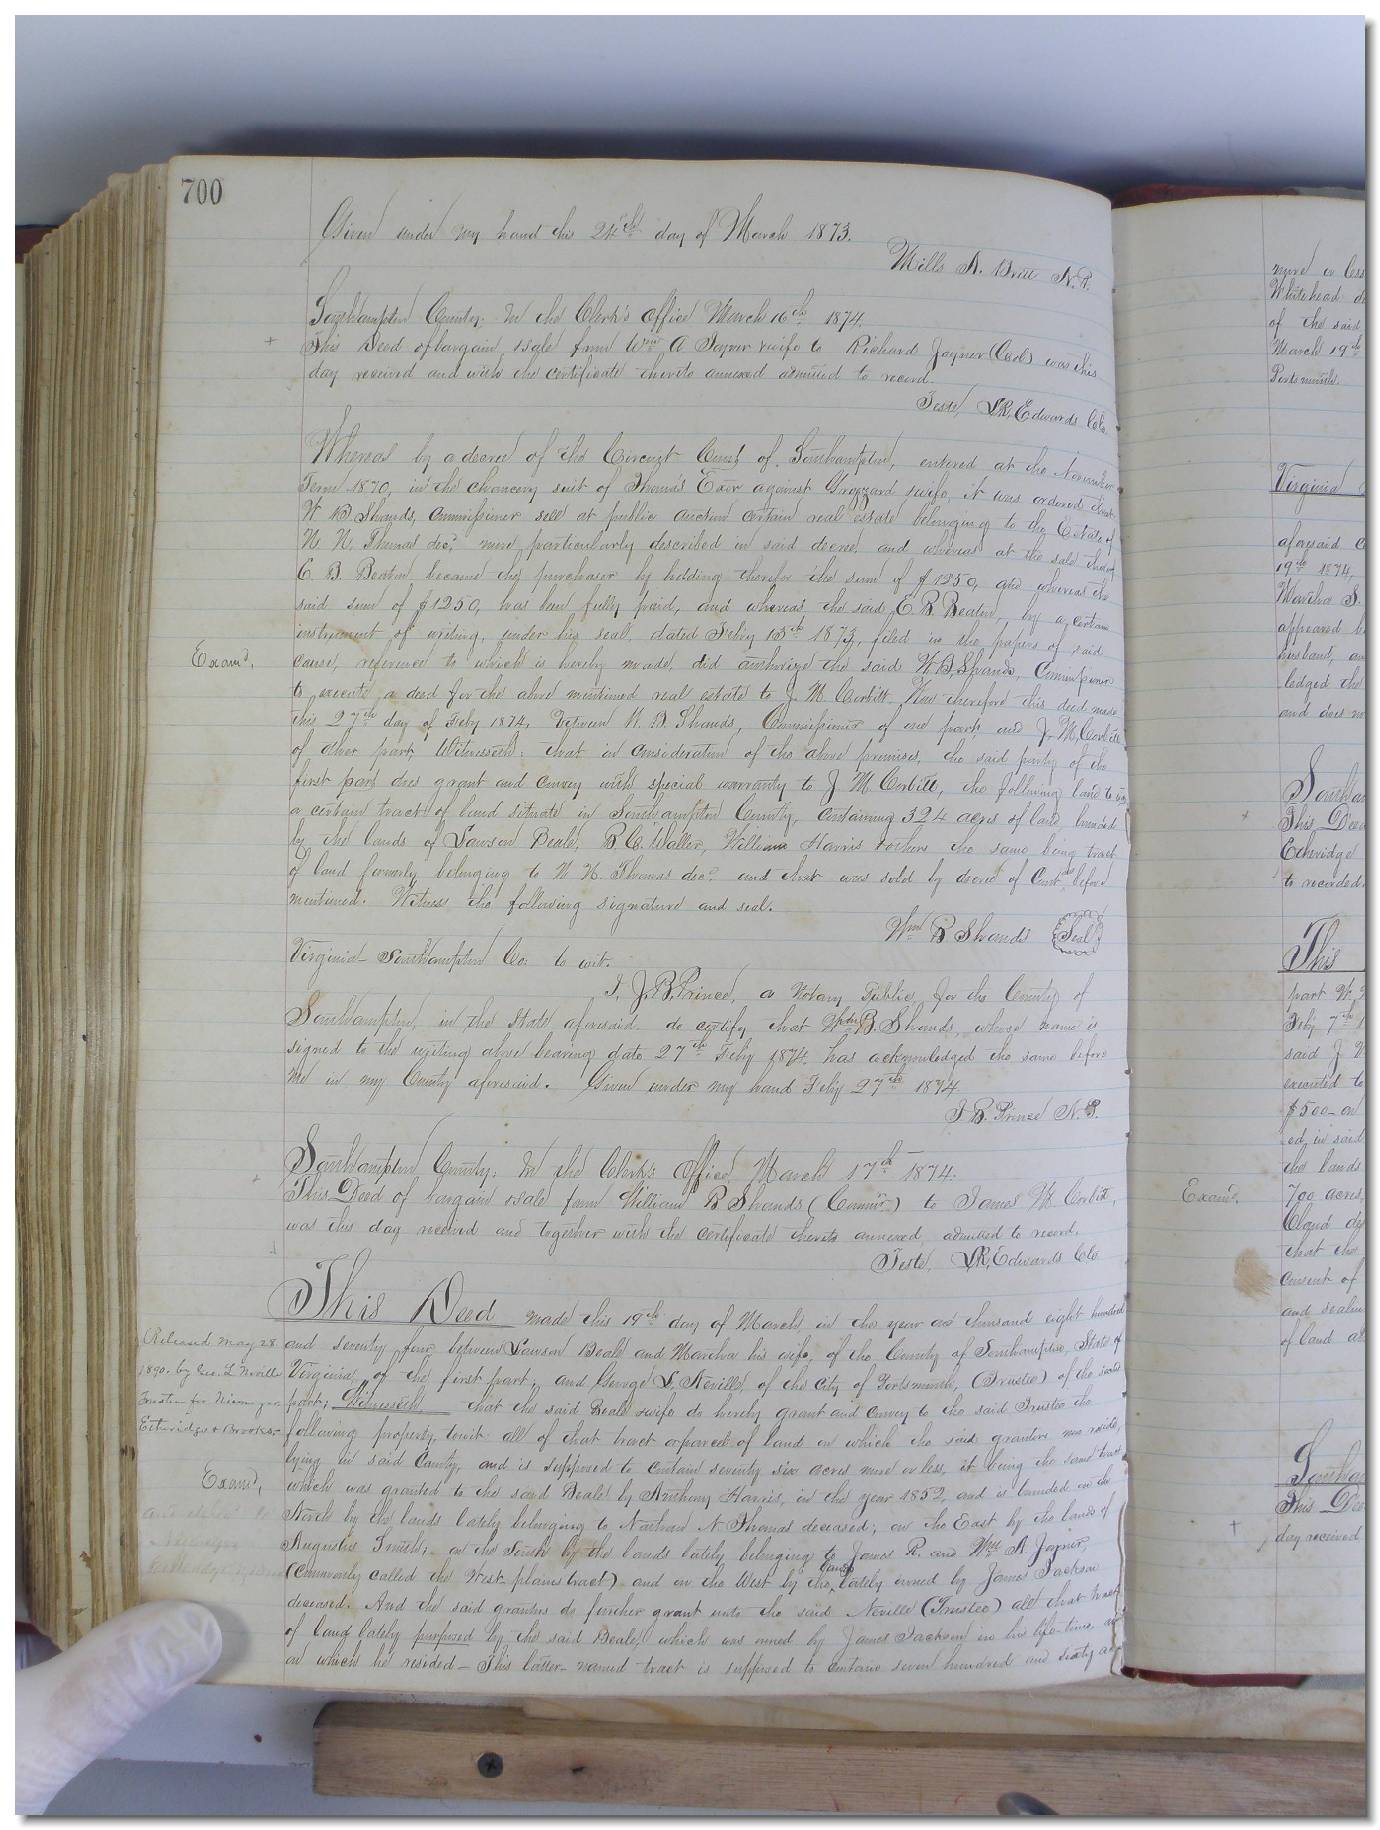 700
Given under my hand this 24th day of March 1873.
Mills A. Britt N.P.
Southampton County: In the Clerk's Office March 16th 1874.
This Deed of bargain & sale from Wm A Joyner & wife to Richard Joyner (Cold) was this
day received and with the certificate thereto annexed admitted to record.
Teste L.R. Edwards Clk.
Whereas by a decree of the Circuit Court of Southampton, entered at the November
Term 1870, in the chancery suit of Thomas' Exor against Gizzard & wife, it was ordered that
W. B. Shands, Commissioner sell at public auction certain real estate belonging to the Estate of
N. N. Thomas decd. more particularly described in said decree, and whereas at the sale thereof
E. B. Beaton became the purchaser by bidding therefor the sum of $1250, and whereas the
said sum of $1250, has been fully paid, and whereas the said E. B. Beaton, by a certain
instrument of writing, under his seal, dated Feby 13th 1873, filed in the papers of said
Examd,
cause, reference to which is hereby made, did authorize the said W. B. Shands, Commissioner
to execute a deed for the above mentioned real estate to J. M. Corbitt. Now therefore this deed made
this 27th day of Feby 1874, between W. B. Shands, Commissioner of one part, and J. M. Corbitt
of other part, Witnesseth: that in consideration of the above premises, the said party of the
first part does grant and convey with special warranty to J. M. Corbitt, the following land to wit,
a certain tract of land situate in Southampton County, containing 324 acres of land, bounded
by the lands of Lawson Beale, B. C. Waller, William Harris & others the same being tract
of land formerly belonging to N. N. Thomas decd. and that was sold by decree of Court as before
mentioned. Witness the following signature and seal.
Wm B Shands (Seal)
Virginia - Southampton Co: to wit.
I, J. B. Prince, a Notary Public, for the County of
Southampton, in the State aforesaid, do certify that Wm B. Shands, whose name is
signed to the writing above bearing date 27th Feby 1874. has acknowledged the same before
me in my County aforesaid. Given under my hand Feby 27th 1874
J. B. Prince N.P.
Southampton County: In the Clerk's Office, March 17th 1874.
This Deed of bargain & sale from William B Shands (Commr.) to James M. Corbitt,
was this day received and together with the certificate thereto annexed, admitted to record.
Teste, L.R. Edwards Clk
This Deed made this 19th day of March in the year one thousand eight hundred
Released May 28
and seventy four between Lawson Beale and Martha his wife, of the County of Southampton, State of
1890. by Geo. L Neville
Virginia, of the first part, and George L. Neville, of the City of Portsmouth, (Trustee) of the second
Trustee for
part; Witnesseth, that the said Beale & wife do hereby grant and convey to the said Trustee the
Etheridge & Brooks
following property, to wit: all of that tract or parcel of land on which the said grantors now reside,
lying in said County, and is supposed to contain seventy six acres more or less, it being the same tract
Examd,
which was granted to the said Beale by Anthony Harris, in the year 1852, and is bounded on the
North by the lands lately belonging to Nathan N. Thomas deceased; on the East by the lands of
Augustus Smith; on the South by the lands lately belonging to James R. and Wm A Joyner,
(Commonly called the West plains tract) and on the West by the lands lately owned by James Jackson
deceased. And the said grantors do further grant unto the said Neville (Trustee) all that tract
of land lately purchased by the said Beale, which was owned by James Jackson in his life-time, and
on which he resided - This latter-named tract is supposed to contain seven hundred and sixty
more or less
Whitehead
of the said
March 19th
Portsmouth.
Virginia
aforesaid
19th 1874,
Martha S.
appeared
husband,
ledged the
and does
This Deed
Etheridge
to recorded
This
part W.
Feby 7th
said J.
executed to
$500 - on
ed in said
the lands
Examd,
700 acres,
that the
consent of
and
of land
This Deed
day received